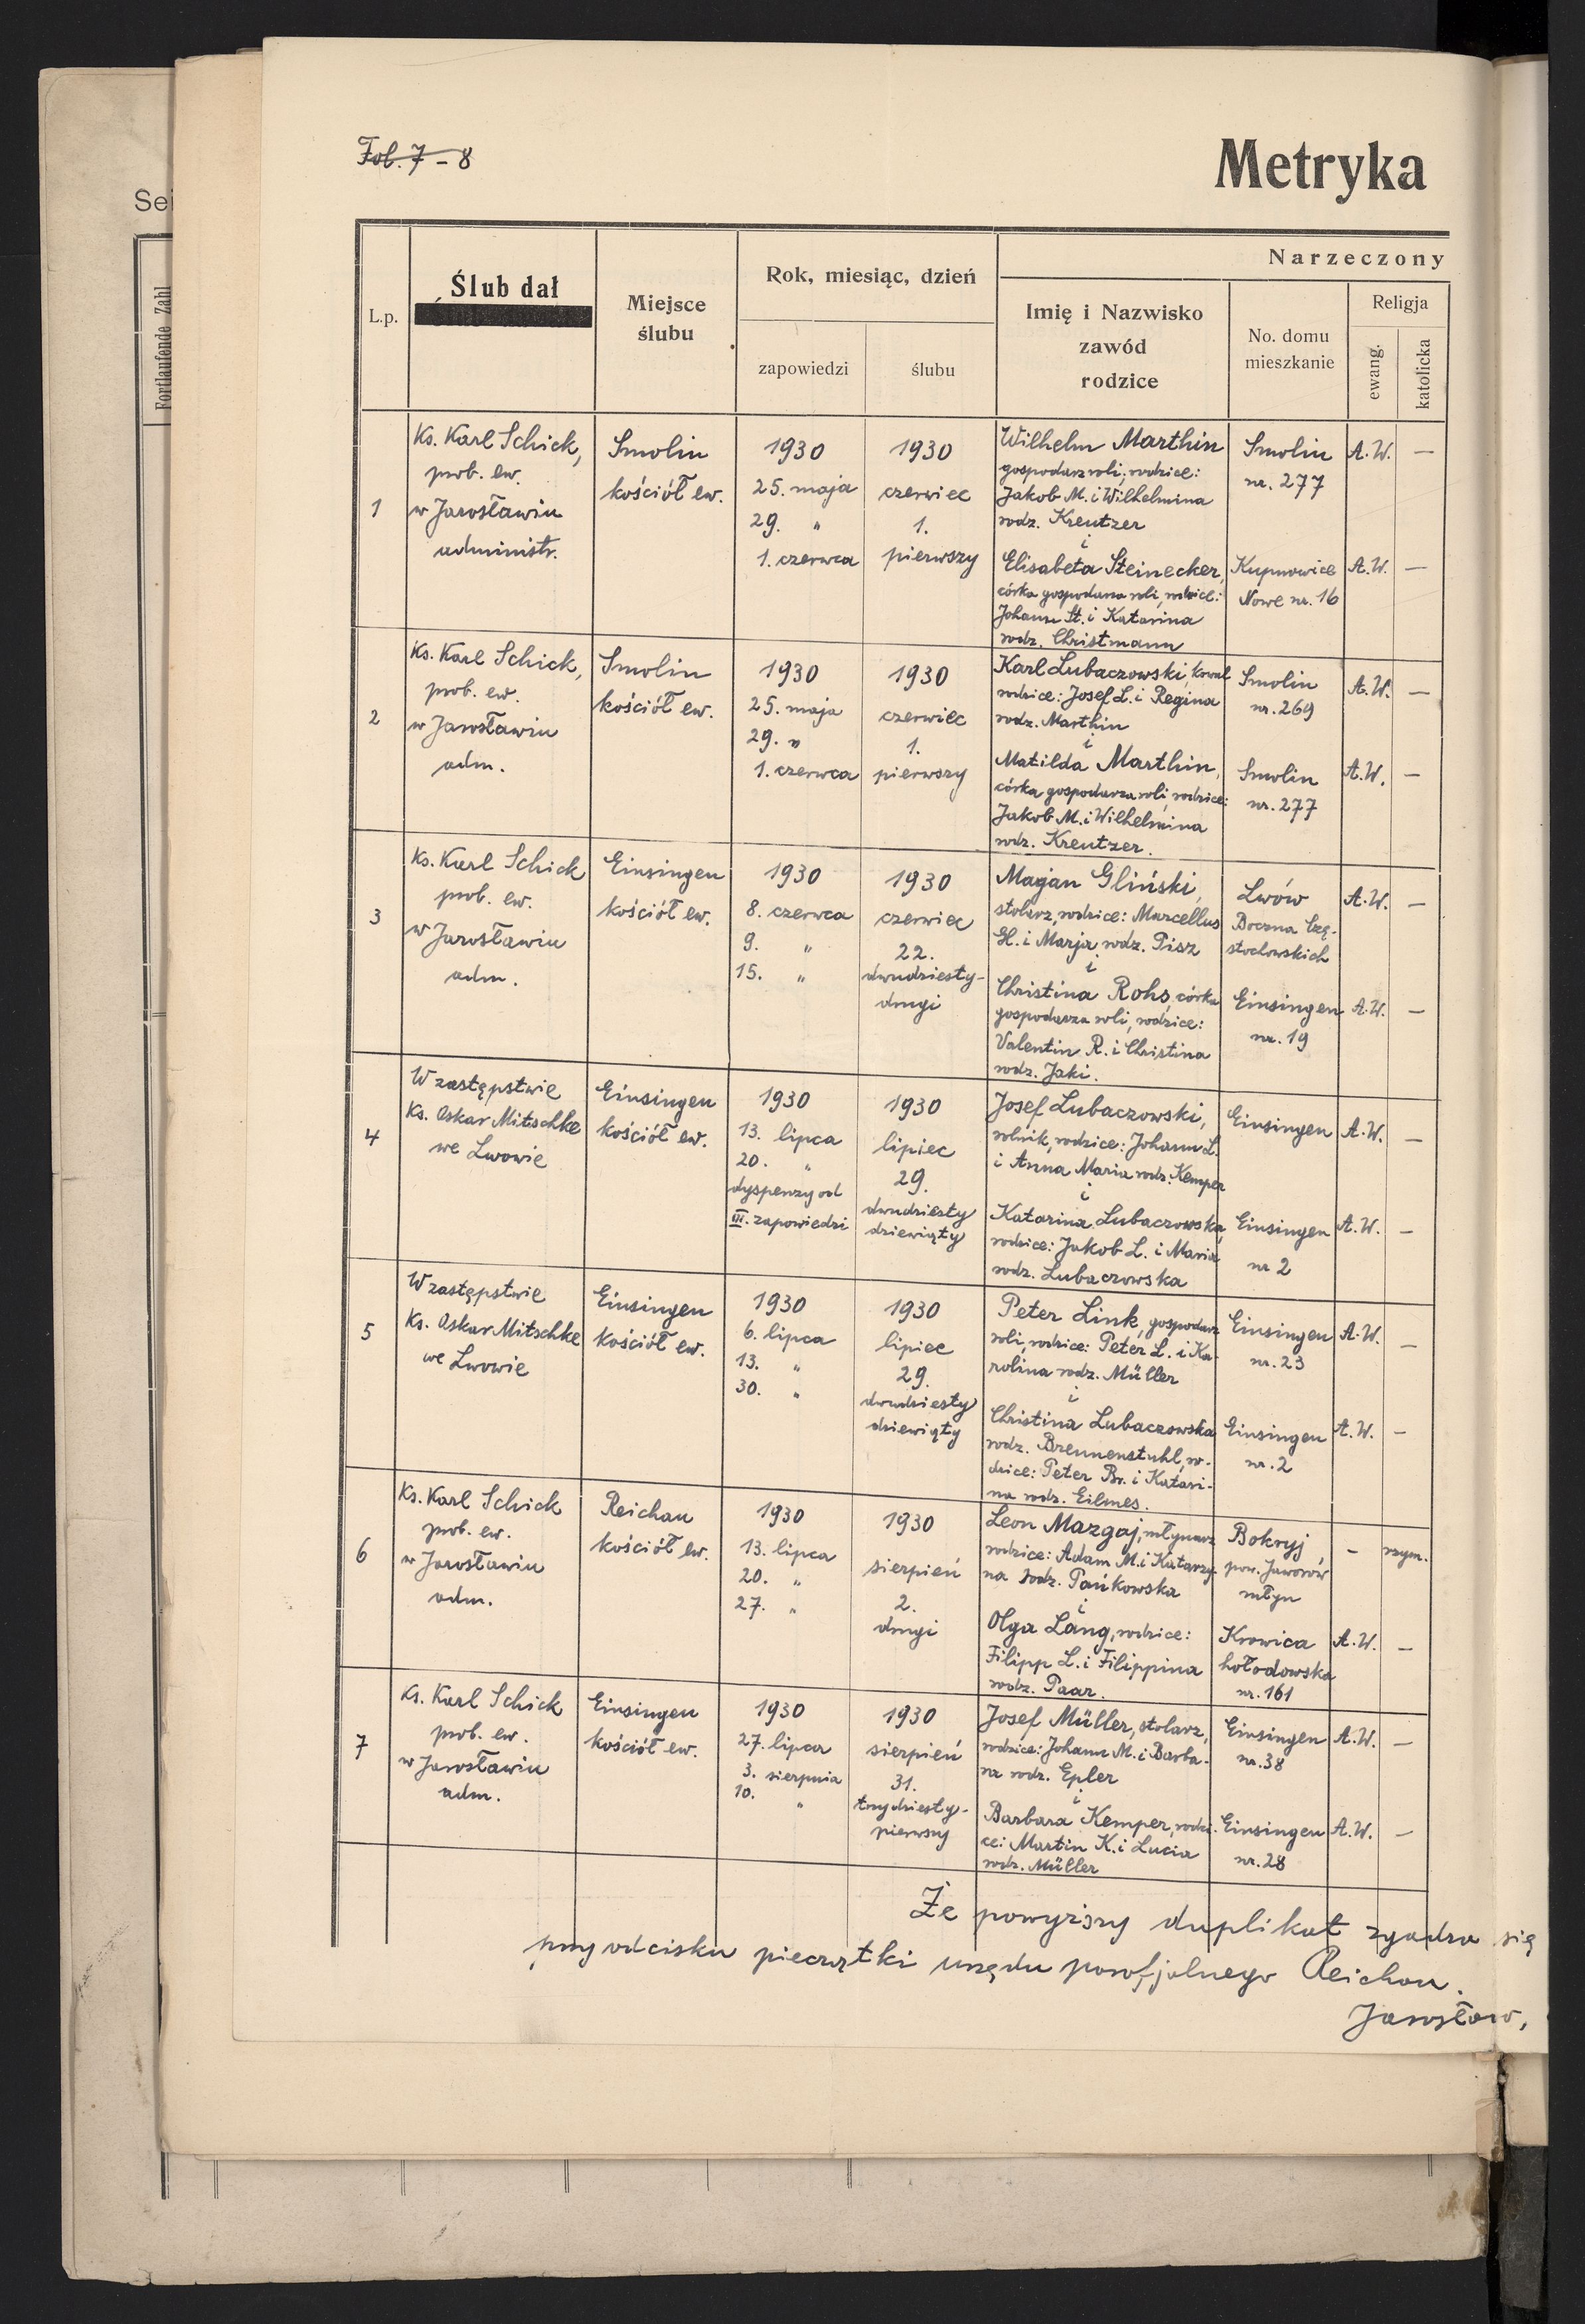 Sei
Fortlaufende Zahl
Fol. 7 - 8
Metryka
L.p.
Ślub dał
Miejsce
ślubu
Rok, miesiąc, dzień
zapowiedzi
ślubu
Narzeczony
Imię i Nazwisko
zawód
rodzice
No. domu
mieszkanie
Religja
ewang.
katolicka
1
Ks. Karl Schick,
prob. ew.
w Jarosławiu
administr.
Smolin
kościół ew.
1930
25. maja
29. "
1. czerwca
1930
czerwiec
1.
pierwszy
Wilhelm Marthin
gospodarz roli, rodzice:
Jakob M. i Wilhelmina
rodz. Kreutzer
i
Elisabeta Steinecker,
córka gospodarza roli, rodzice:
Johann St. i Katarina
rodz. Christmann
Smolin
nr. 277
Kupnowice
Nowe nr. 16
A.W.
—
A.W.
—
2
Ks. Karl Schick,
prob. ew.
w Jarosławiu
adm.
Smolin
kościół ew.
1930
25. maja
29. "
1. czerwca
1930
czerwiec
1.
pierwszy
Karl Lubaczowski, kowal
rodzice: Josef L. i Regina
rodz. Marthin
i
Matilda Marthin,
córka gospodarza roli, rodzice:
Jakob M. i Wilhelmina
rodz. Kreutzer.
Smolin
nr. 269
Smolin
nr. 277
A.W.
—
A.W.
—
3
Ks. Karl Schick
prob. ew.
w Jarosławiu
adm.
Einsingen
kościół ew.
1930
8. czerwca
9. "
15. "
1930
czerwiec
22.
dwudziesty-
drugi
Marjan Gliński,
stolarz, rodzice: Marcellus
Gl. i Marja rodz. Pisz
i
Christina Rohs, córka
gospodarza roli, rodzice:
Valentin R. i Christina
rodz. Jaki.
Lwów
Boczna Czę-
stochowskich
Einsingen
nr. 19
A.W.
—
A.W.
—
4
W zastępstwie
Ks. Oskar Mitschke
we Lwowie
Einsingen
kościół ew.
1930
13. lipca
20. "
dyspenzy od
III. zapowiedzi
1930
lipiec
29.
dwudziesty
dziewiąty
Josef Lubaczowski,
rolnik, rodzice: Johann L.
i Anna Maria rodz. Kemper
i
Katarina Lubaczowska,
rodzice: Jakob L. i Maria
rodz. Lubaczowska
Einsingen
Einsingen
nr 2
A.W.
—
A.W.
—
5
W zastępstwie
Ks. Oskar Mitschke
we Lwowie
Einsingen
kościół ew.
1930
6. lipca
13. "
30. "
1930
lipiec
29.
dwudziesty
dziewiąty
Peter Link, gospodarz
roli, rodzice: Peter L. i Ka-
rolina rodz. Müller
i
Christina Lubaczowska
rodz. Brennenstuhl, ro-
dzice: Peter Br. i Katari-
na rodz. Eilmes.
Einsingen
nr. 23
Einsingen
nr. 2
A.W.
—
A.W.
—
6
Ks. Karl Schick
prob. ew.
w Jarosławiu
adm.
Reichau
kościół ew.
1930
13. lipca
20. "
27. "
1930
sierpień
2.
drugi
Leon Mazgaj, młynarz
rodzice: Adam M. i Katarzy-
na rodz. Pańkowska
i
Olga Lang, rodzice:
Filipp L. i Filippina
rodz. Paar.
Bokryj,
pow. Jaworów
młyn
Krowica
hołodowska
nr. 161
—
rzym.
A.W.
—
7
Ks. Karl Schick
prob. ew.
w Jarosławiu
adm.
Einsingen
kościół ew.
1930
27. lipca
3. sierpnia
10. "
1930
sierpień
31.
trzydziesty-
pierwszy
Josef Müller, stolarz,
rodzice: Johann M. i Barba-
ra rodz. Epler
i
Barbara Kemper, rodzi-
ce: Martin K. i Lucia
rodz. Müller
Einsingen
nr. 38
Einsingen
nr. 28
A.W.
—
A.W.
—
Że powyższy duplikat zgadza się
przy odcisku pieczątki urzędu parafjalnego Reichau.
Jarosław,